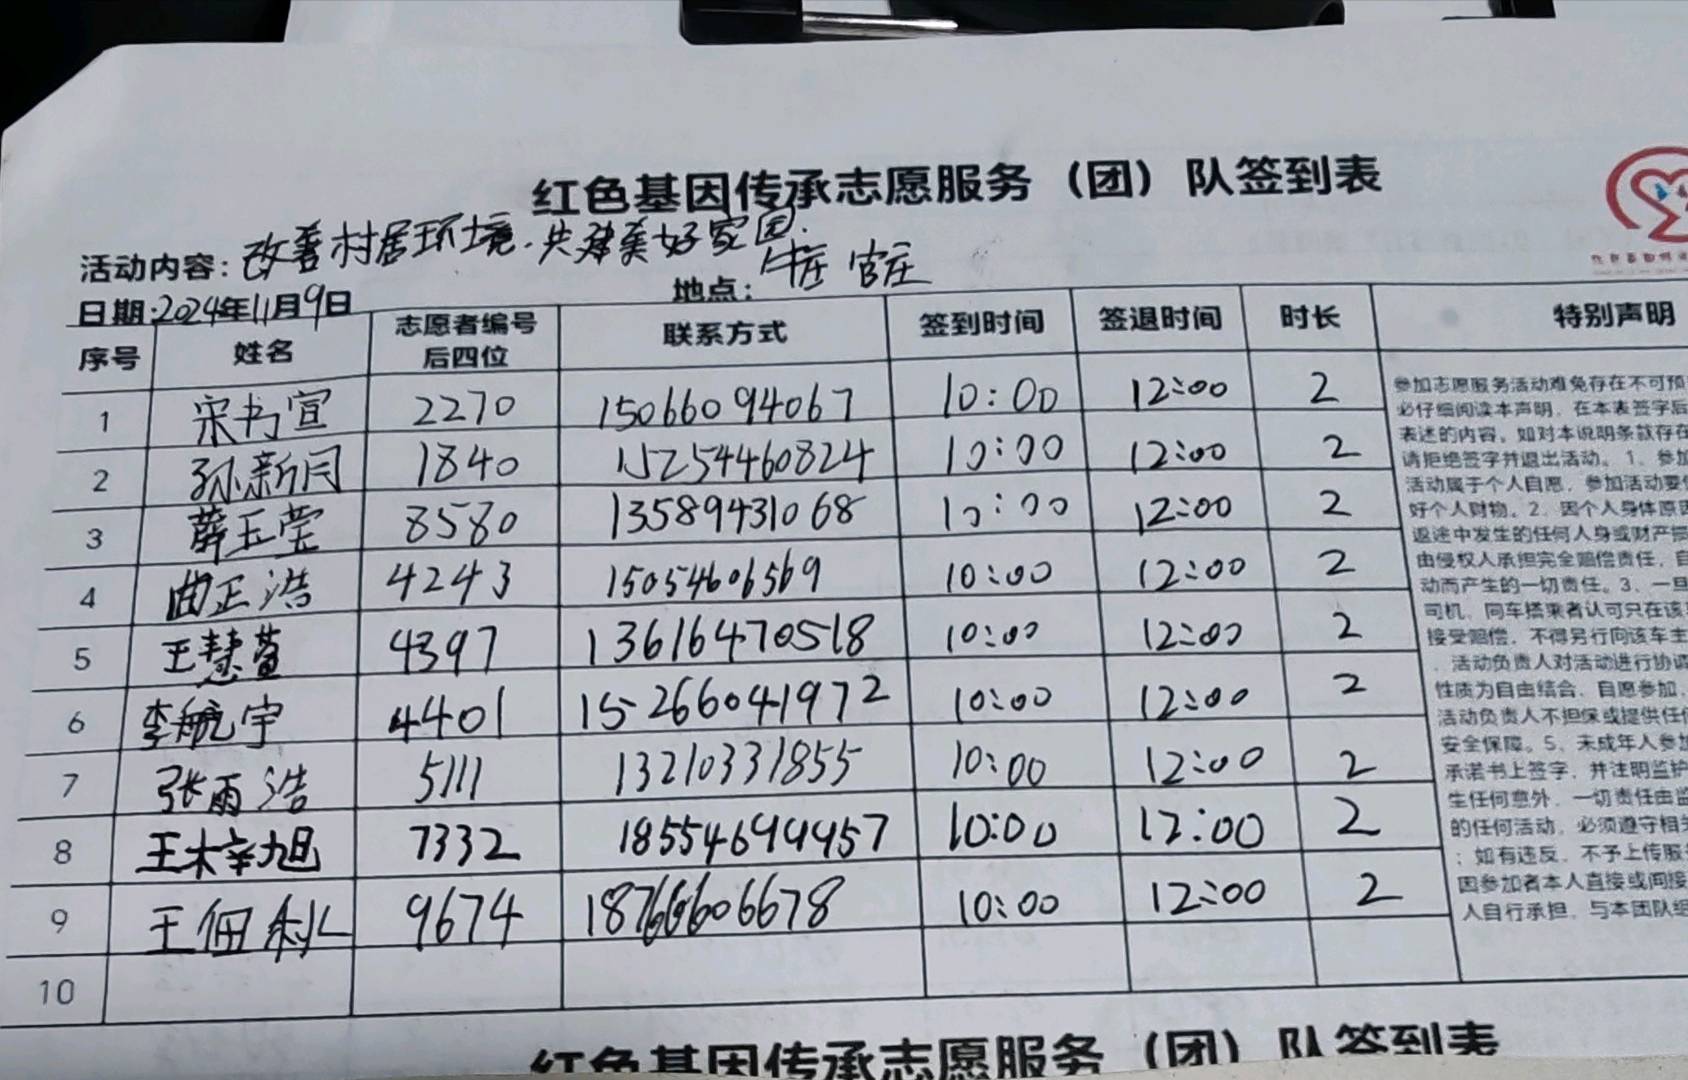 红色基因传承志愿服务（团）队签到表
活动内容：改善村居环境.共建美好家园.
日期：2024年11月9日 地点：牛庄 官庄
序号 姓名 志愿者编号后四位 联系方式 签到时间 签退时间 时长 特别声明
1 宋书宣 2270 15066094067 10:00 12:00 2
2 孙新同 1840 15254460824 10:00 12:00 2
3 薛玉莹 8580 13589431068 10:00 12:00 2
4 曲正浩 4243 15054606569 10:00 12:00 2
5 王慧萱 4397 13616470518 10:00 12:00 2
6 李航宇 4401 15266041972 10:00 12:00 2
7 张雨浩 5111 13210331855 10:00 12:00 2
8 王梓旭 7332 18554699957 10:00 12:00 2
9 王佃 9674 10:00 12:00 2
10
参加志愿服务活动难免存在不可预
必仔细阅读本声明，在本表签字后
表述的内容。如对本说明条款存在
请拒绝签字并退出活动。1、参加
活动属于个人自愿，参加活动要
好个人财物。2、因个人身体原因
返途中发生的任何人身或财产损
由侵权人承担完全赔偿责任，自
动而产生的一切责任。3、一旦
司机，同车搭乘者认可只在该
接受赔偿，不得另行向该车主
、活动负责人对活动进行协调
性质为自由结合、自愿参加、
活动负责人不担保或提供任何
安全保障。5、未成年人参加
承诺书上签字，并注明监护
生任何意外，一切责任由监
的任何活动，必须遵守相关
；如有违反，不予上传服
因参加者本人直接或间接
人自行承担，与本团队组
红色基因传承志愿服务（团）队签到表